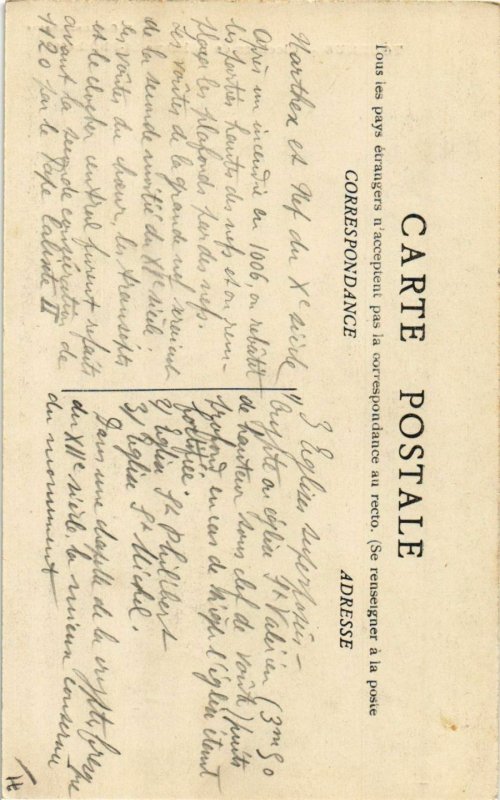 CARTE POSTALE
Tous les pays étrangers n'acceptent pas la correspondance au recto. (Se renseigner à la poste
CORRESPONDANCE
ADRESSE
Narthex et Nef du Xe siècle
Après un incendie en 1006, on rebâtit
les parties hautes des nefs et on rem-
plaça les plafonds par des nefs.
Les voûtes de la grande nef seraient
de la seconde moitié du XIe siècle.
Les voûtes du chœur, les transepts
et le clocher central furent refaits
avant la seconde consécration de
1120 par le Pape Calixte II
3 Eglises superposées -
1) Crypte ou église St Valérien (3m90
de hauteur sous clef de voûte) puits
profond en cas de siège l'église étant
fortifiée.
2) Eglise St Philibert
3) Eglise St Michel.
Dans une chapelle de la crypte fresque
du XIIe siècle, la mieux conservée
du monument